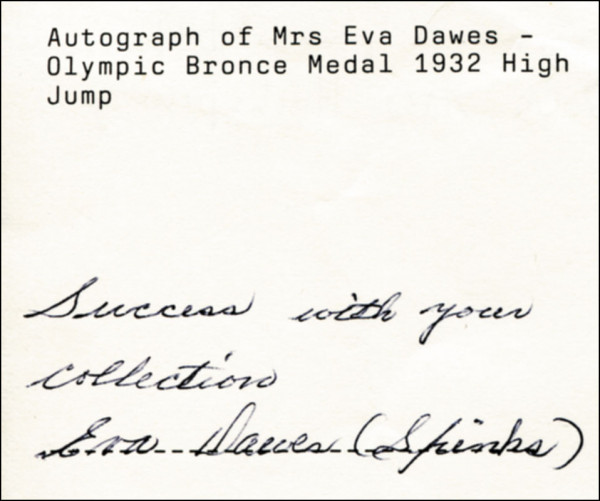 Autograph of Mrs Eva Dawes -
Olympic Bronce Medal 1932 High
Jump
Success with your
collection
Eva Dawes (Spinks)